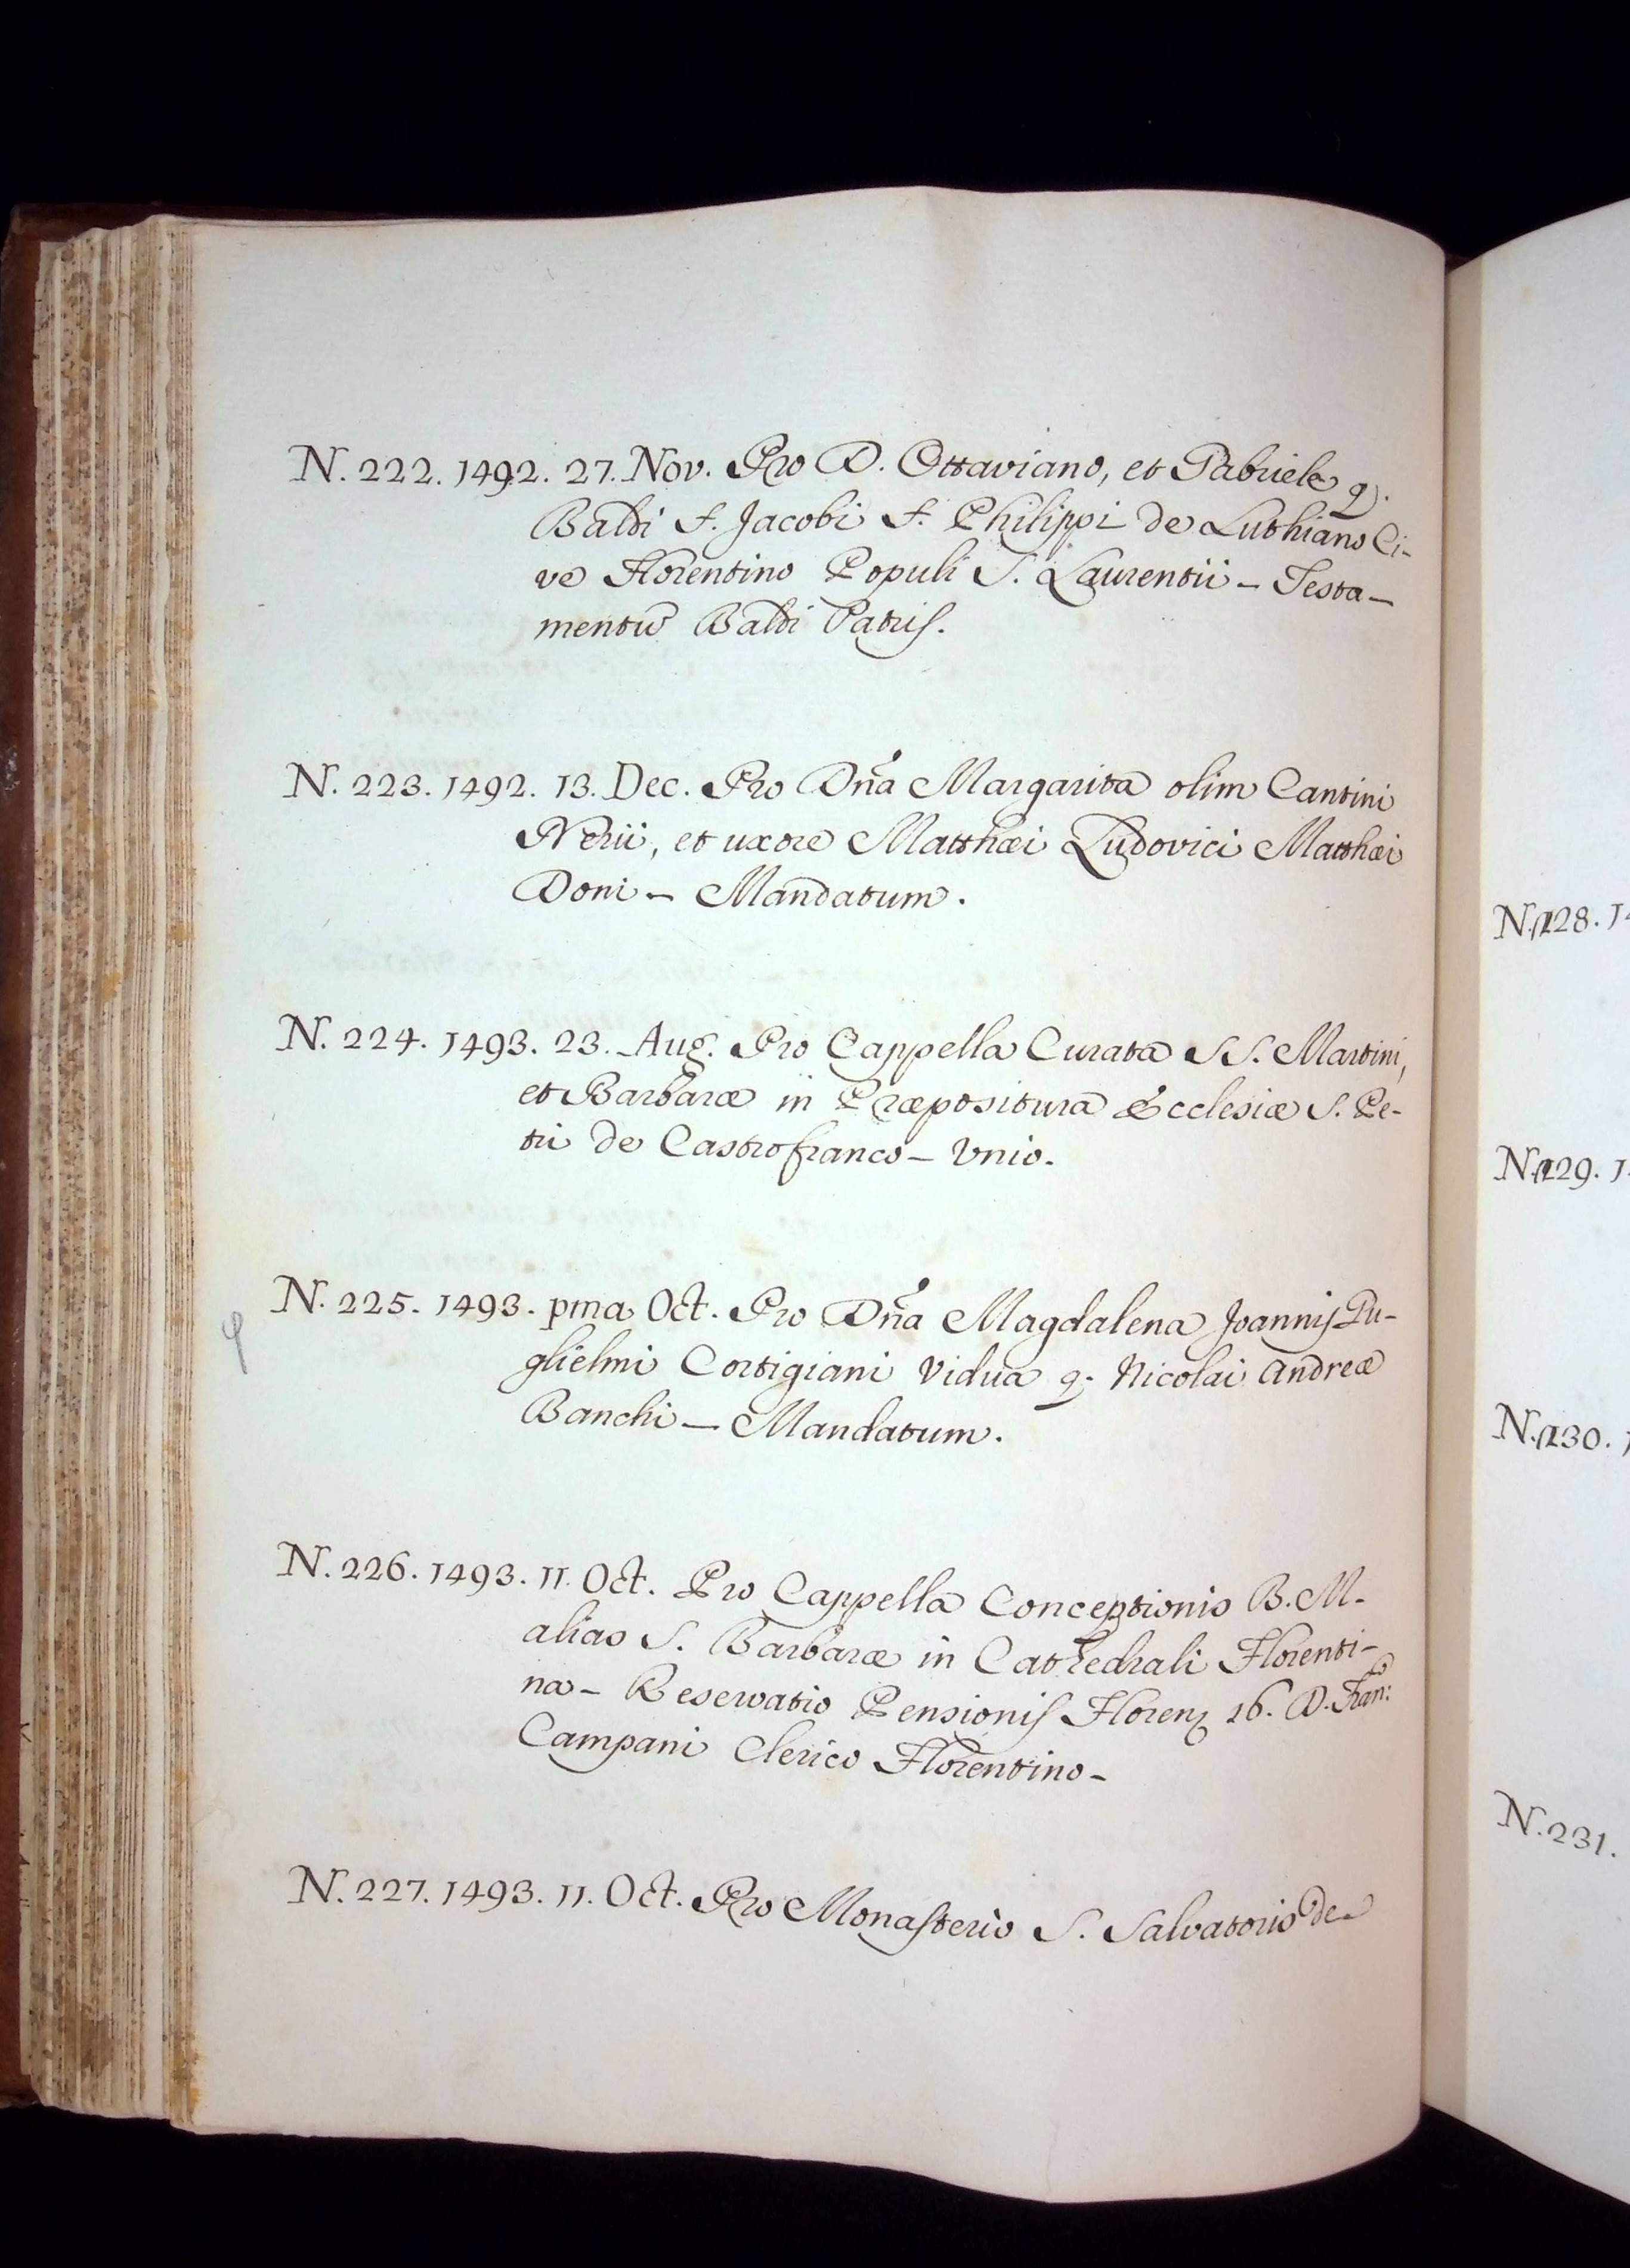 N. 222. 1492. 27. Nov. Pro D. Ottaviano, et Gabriele q.
Baldi f. Jacobi f. Philippi de Luthiano Ci-
ve Florentino Populi S. Laurentii - Testa-
mentũ Baldi Patris.
N. 223. 1492. 13. Dec. Pro Dña Margarita olim Cantini
Nerii, et uxore Matthæi Ludovici Matthæi
Doni - Mandatum.
N. 224. 1493. 23. Aug. Pro Cappella Curata SS. Martini,
et Barbaræ in Præpositura Ecclesiæ S. Pe-
tri de Castrofranco - Unio.
N. 225. 1493. pma Oct. Pro Dña Magdalena Joannis Gu-
glielmi Cortigiani Vidua q. Nicolai Andreæ
Banchi - Mandatum.
N. 226. 1493. 11. Oct. Pro Cappella Conceptionis B. M.
alias S. Barbaræ in Cathedrali Florenti-
na - Reservatio Pensionis Floren. 16. D. Fran:co
Campani Clerico Florentino -
N. 227. 1493. 11. Oct. Pro Monasterio S. Salvatoris de
N. 128. 14
N. 129. 1
N. 130. 1
N. 231.